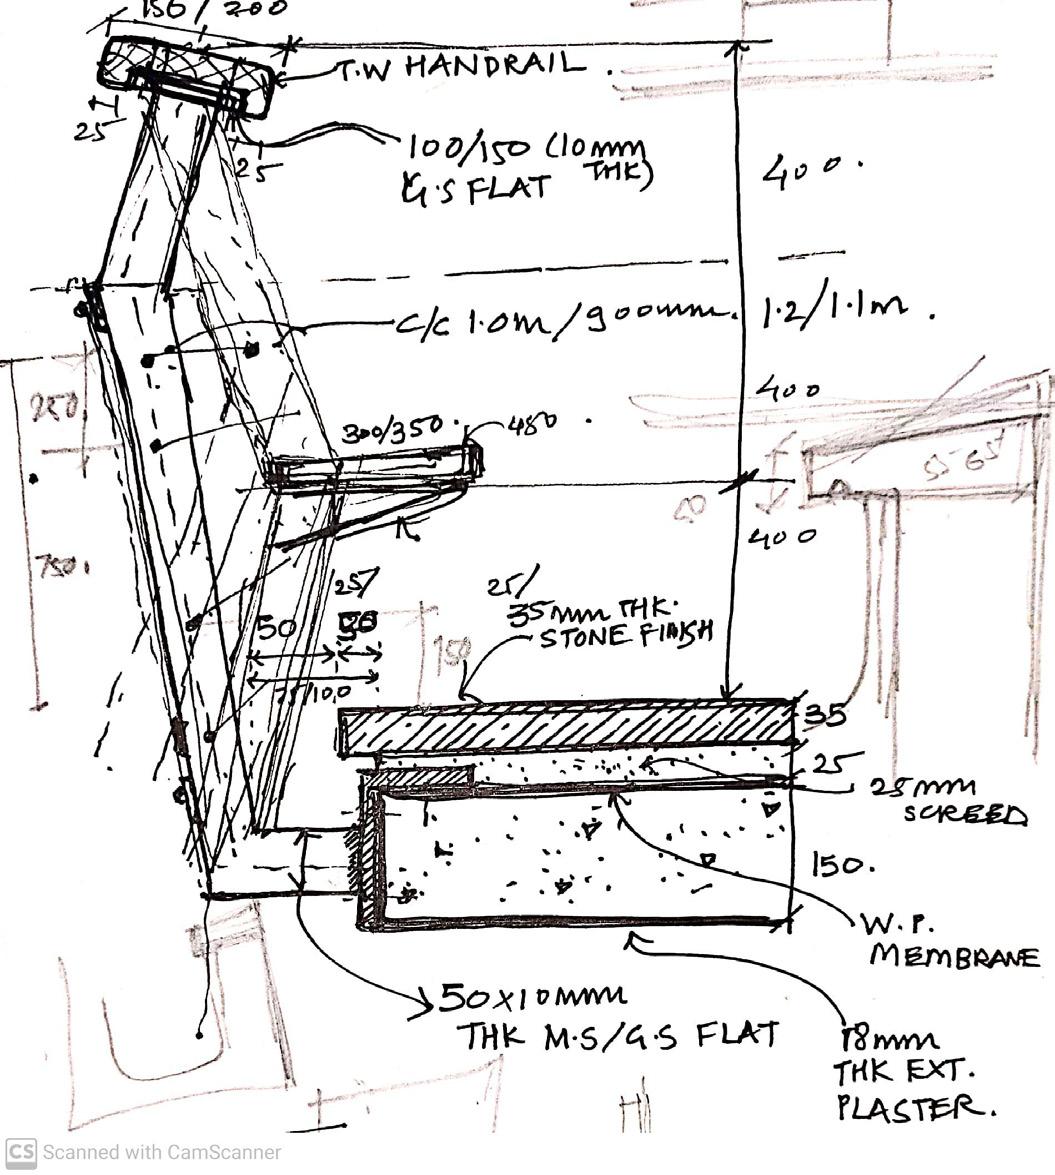 150/200
T.W HANDRAIL.
25
25
100/150 (10mm
THK)
G.S FLAT
400.
C/C 1.0m/900mm.
1.2/1.1m.
250
400
300/350.
480.
55-65
40
400
750.
25/
50
75/100
150
25/
35mm THK.
STONE FINISH
35
25
25mm
SCREED
150.
W.P.
MEMBRANE
50x10mm
THK M.S/G.S FLAT
18mm
THK EXT.
PLASTER.
CS Scanned with CamScanner